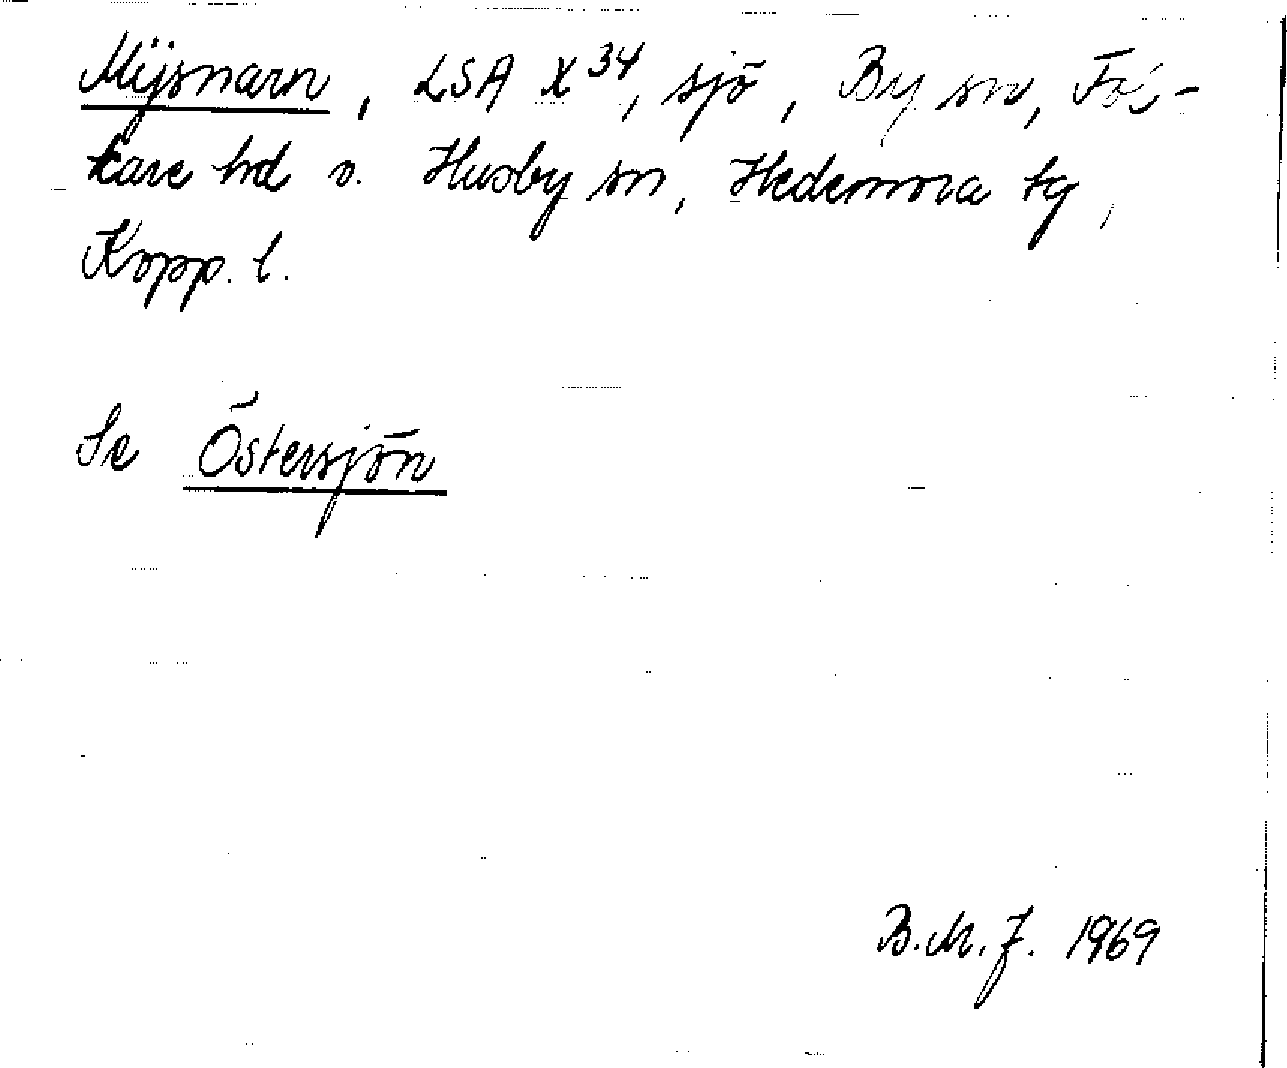 Mÿsnarn, LSA X 34, sjö, By sn, Fol-
kare hd o. Husby sn, Hedemora tg,
Kopp. l.
Se Östersjön
B.M.J. 1969